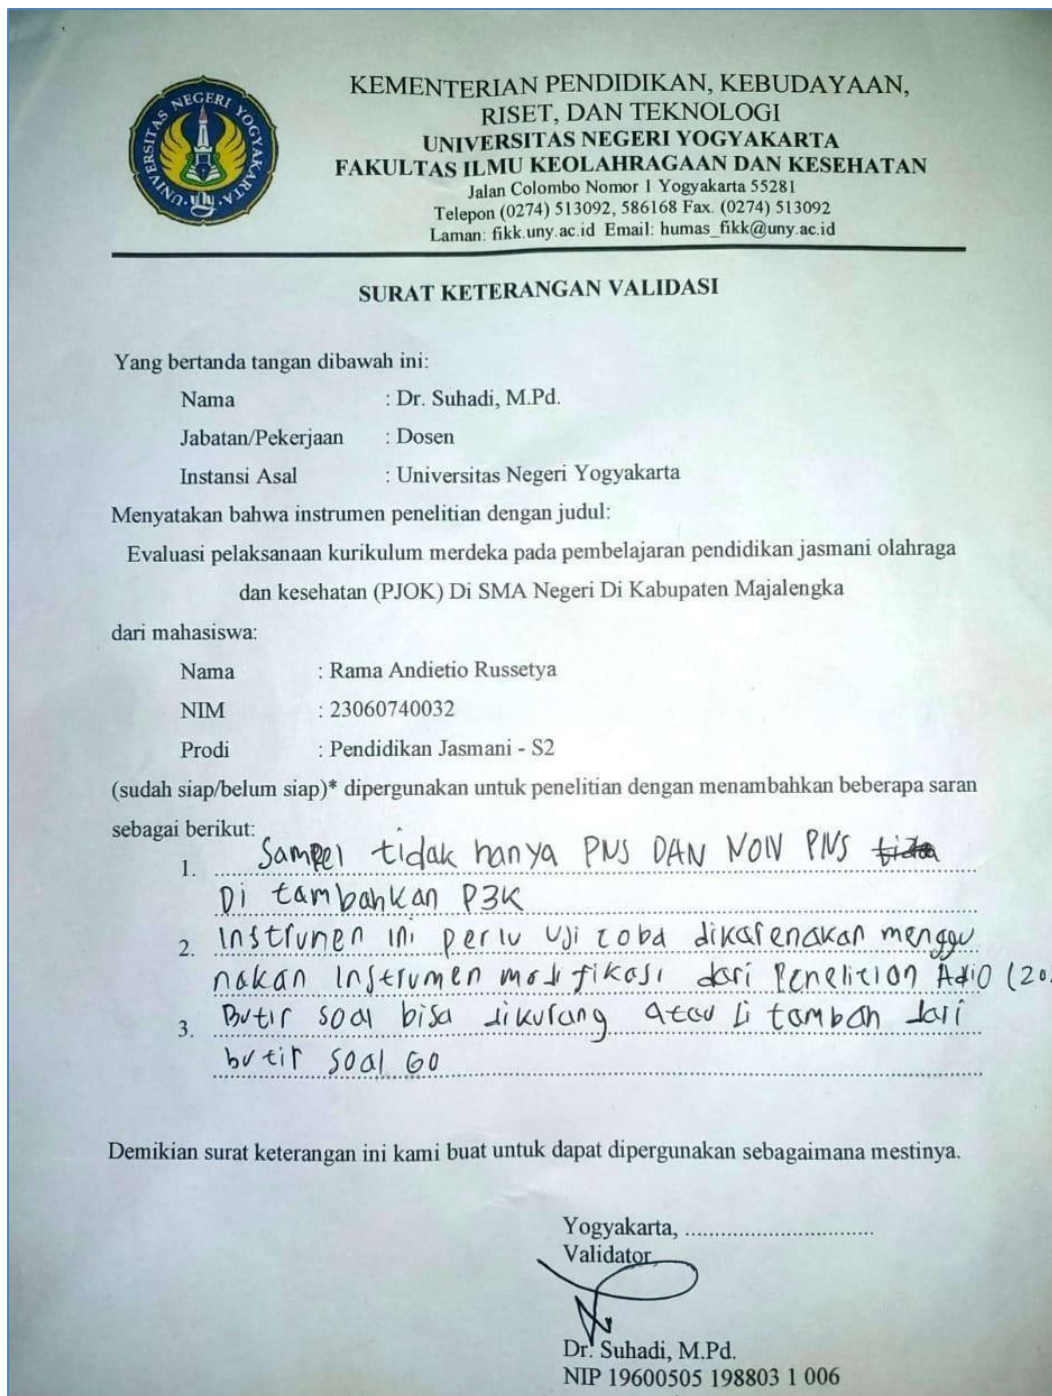 UNIVERSITAS NEGERI YOGYAKARTA
KEMENTERIAN PENDIDIKAN, KEBUDAYAAN,
RISET, DAN TEKNOLOGI
UNIVERSITAS NEGERI YOGYAKARTA
FAKULTAS ILMU KEOLAHRAGAAN DAN KESEHATAN
Jalan Colombo Nomor 1 Yogyakarta 55281
Telepon (0274) 513092, 586168 Fax. (0274) 513092
Laman: fikk.uny.ac.id Email: humas_fikk@uny.ac.id
SURAT KETERANGAN VALIDASI
Yang bertanda tangan dibawah ini:
Nama : Dr. Suhadi, M.Pd.
Jabatan/Pekerjaan : Dosen
Instansi Asal : Universitas Negeri Yogyakarta
Menyatakan bahwa instrumen penelitian dengan judul:
Evaluasi pelaksanaan kurikulum merdeka pada pembelajaran pendidikan jasmani olahraga
dan kesehatan (PJOK) Di SMA Negeri Di Kabupaten Majalengka
dari mahasiswa:
Nama : Rama Andietio Russetya
NIM : 23060740032
Prodi : Pendidikan Jasmani - S2
(sudah siap/belum siap)* dipergunakan untuk penelitian dengan menambahkan beberapa saran
sebagai berikut:
1. Sampel tidak hanya PNS DAN NON PNS
Di tambahkan P3K
2. Instrumen ini perlu uji coba dikarenakan menggu
nakan Instrumen modifikasi dari Penelitian Adio (20
3. Butir soal bisa dikurang atau di tambah dari
butir soal 60
Demikian surat keterangan ini kami buat untuk dapat dipergunakan sebagaimana mestinya.
Yogyakarta, ................................
Validator
Dr. Suhadi, M.Pd.
NIP 19600505 198803 1 006